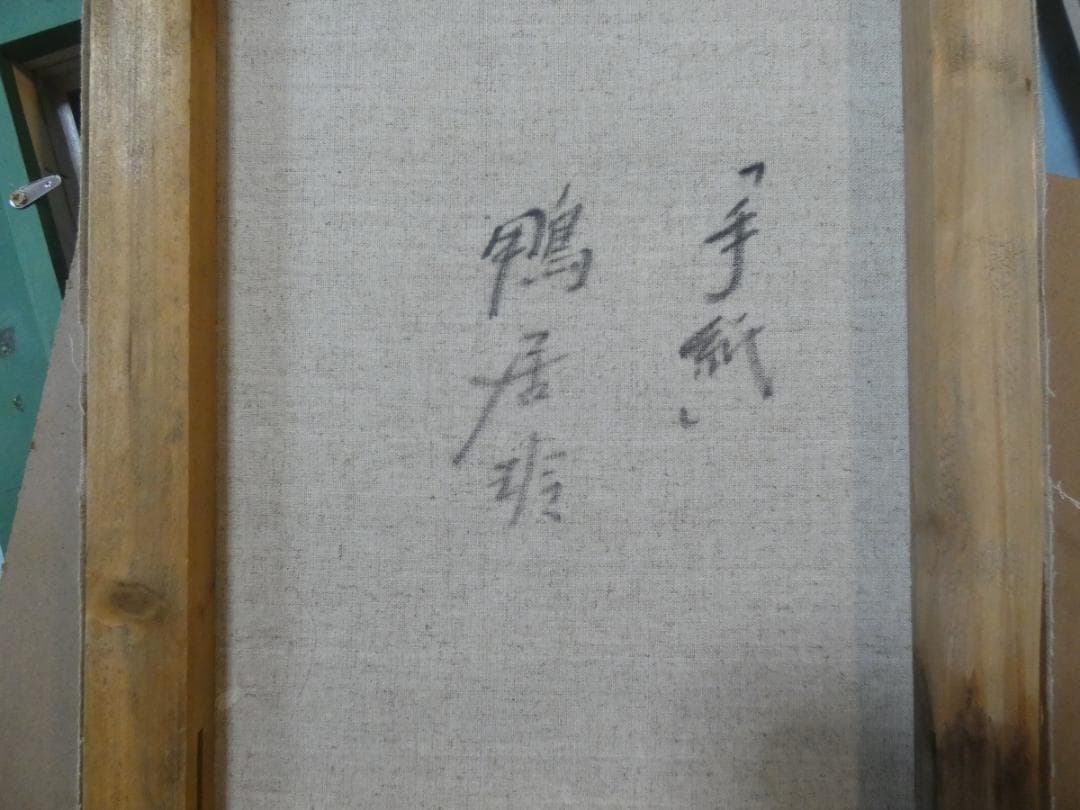 「手紙」
鴨居玲